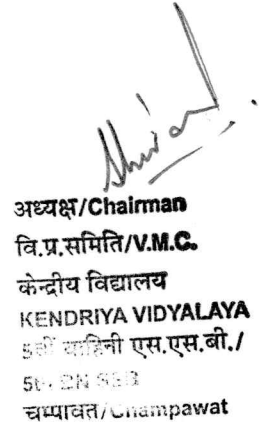 अध्यक्ष/Chairman
वि.प्र.समिति/V.M.C.
केन्द्रीय विद्यालय
KENDRIYA VIDYALAYA
वाहिनी एस.एस.बी./
BN SSB
चम्पावत/Champawat